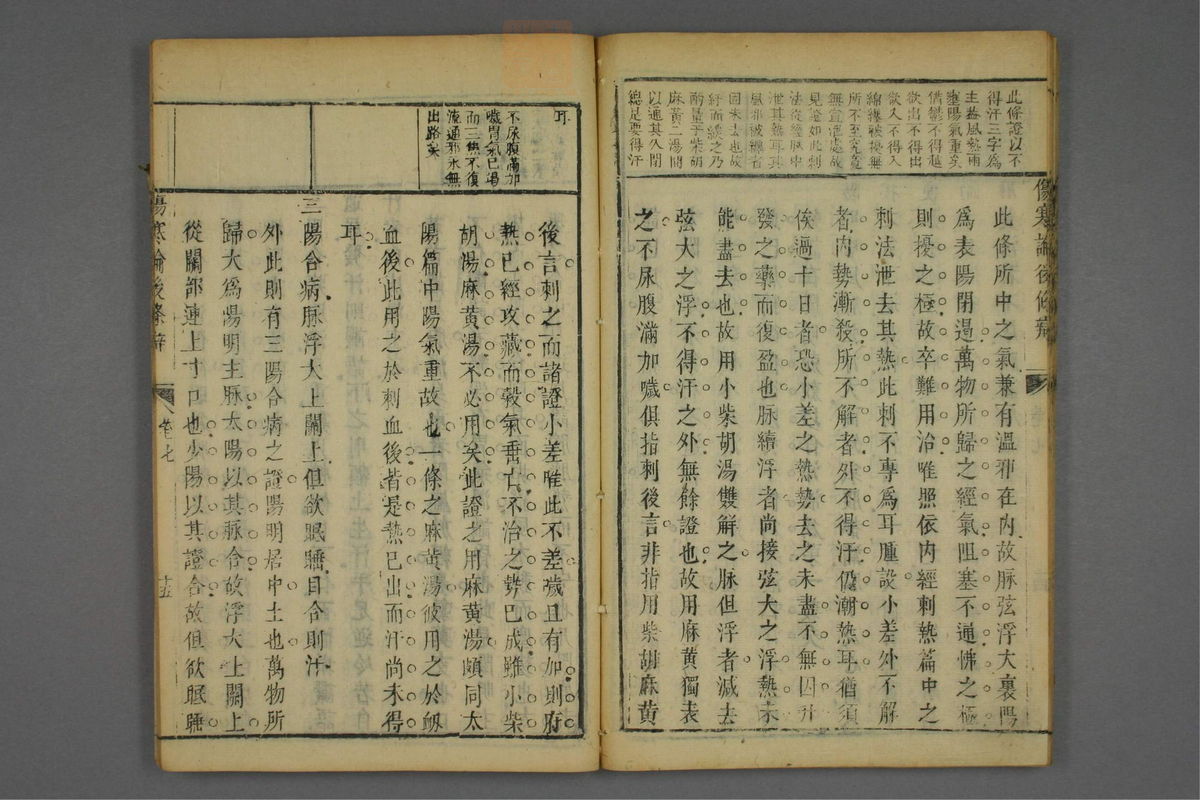 此條證以不
得汗三字爲
主蓋風熱兩
壅陽氣重矣
怫鬱不得越
欲出不得出
欲入不得入
經纏被擾無
所不至究竟
無宣泄處故
見證如此刺
法從經脉中
泄其熱耳其
風邪被纏者
固未去也故
紆而緩之乃
酌量于柴胡
麻黃二湯間
以通其久閉
總是要得汗
傷寒論後條辨
此條所中之氣兼有溫邪在內故脉弦浮大裏陽
爲表陽閉遏萬物所歸之經氣阻塞不通怫之極
則擾之極故卒難用治唯照依內經刺熱篇中之
刺法泄去其熱此刺不專爲耳腫設小差外不解
者內勢漸殺所不解者外不得汗仍潮熱耳猶須
俟過十日者恐小差之熱勢去之未盡不無因升
發之藥而復盈也脉續浮者尚接弦大之浮熱未
能盡去也故用小柴胡湯雙解之脉但浮者減去
弦大之浮不得汗之外無餘證也故用麻黃獨表
之不尿腹滿加噦俱指刺後言非指用柴胡麻黃
耳
不尿腹滿加
噦胃氣已竭
而三焦不復
流通邪永無
出路矣
後言刺之而諸證小差唯此不差噦且有加則府
熱已經攻藏而穀氣垂亡不治之勢已成雖小柴
胡湯麻黃湯不必用矣此證之用麻黃湯頗同太
陽篇中陽氣重故也一條之麻黃湯彼用之於衂
血後此用之於刺血後者是熱已出而汗尚未得
耳
三陽合病脉浮大上關上但欲眠睡目合則汗
外此則有三陽合病之證陽明居中土也萬物所
歸大爲陽明主脉太陽以其脉合故浮大上關上
從關部連上寸口也少陽以其證合故但欲眠睡
傷寒論後條辨
卷七
十五